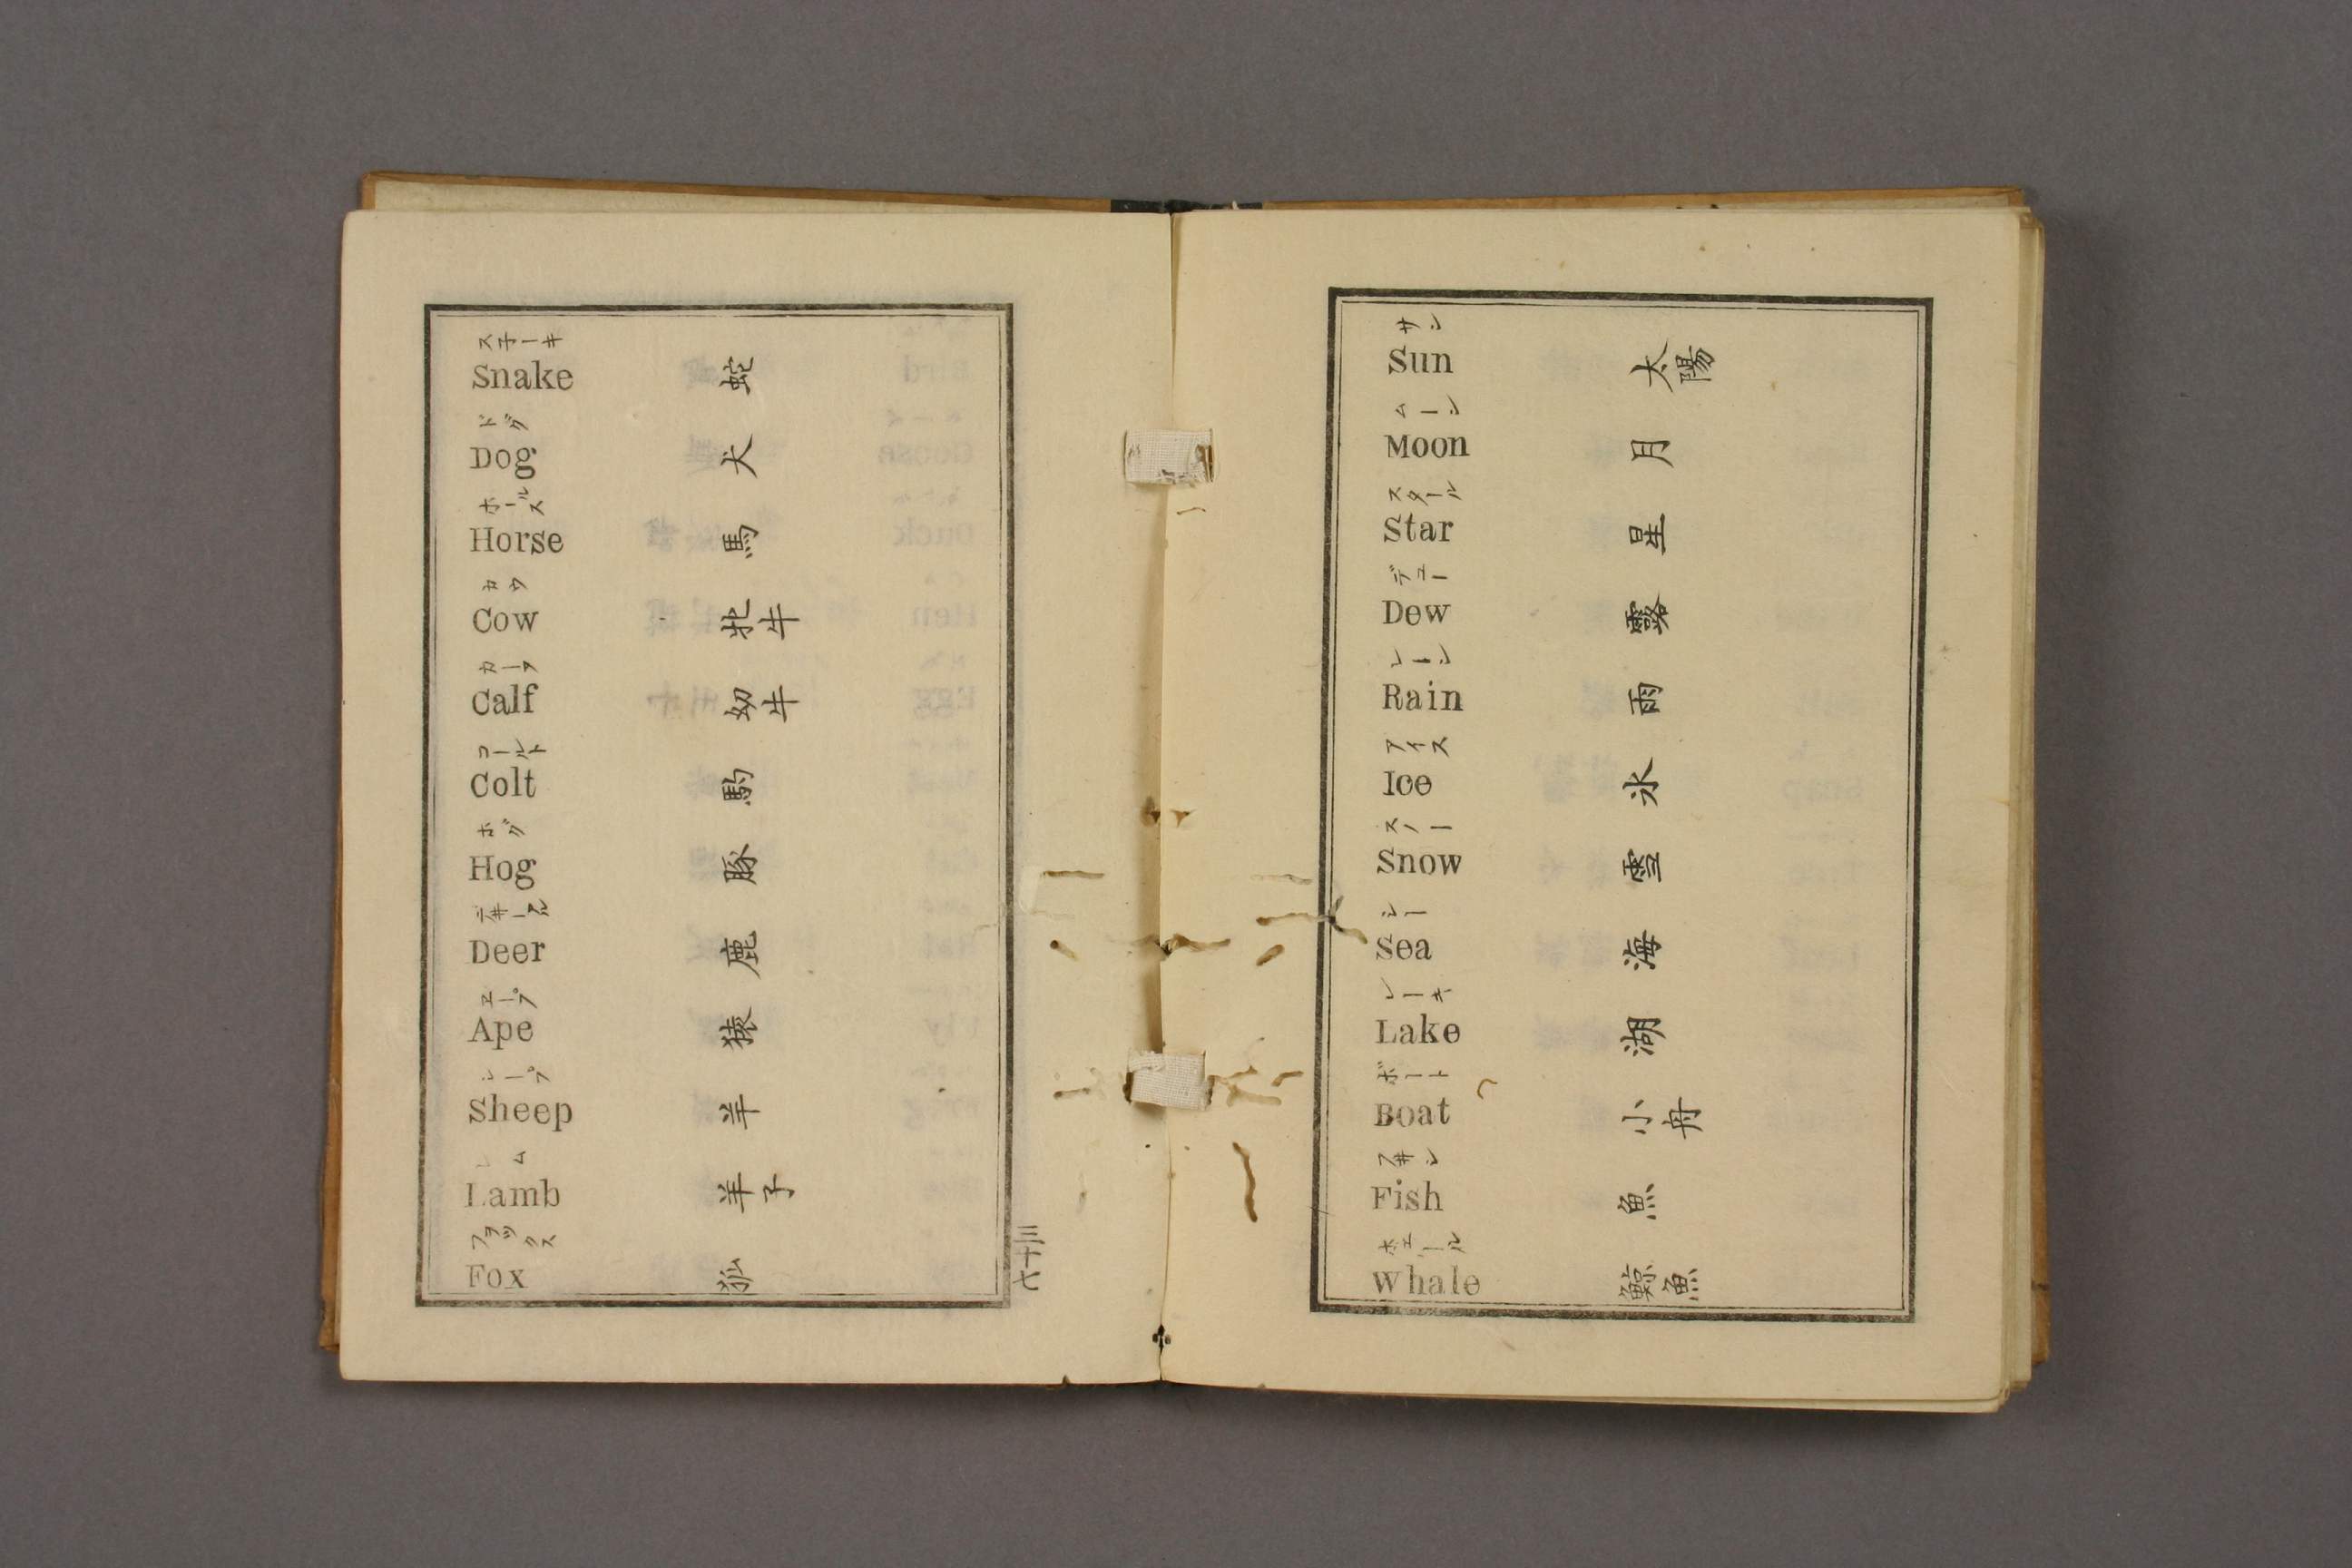 スネーキ
Snake 蛇
ドグ
Dog 犬
ホールス
Horse 馬
カウ
Cow 牝牛
カーフ
Calf 幼牛
コールト
Colt 駒
ホグ
Hog 豚
デヰール
Deer 鹿
エープ
Ape 猿
シープ
Sheep 羊
ム
Lamb 羊子
フヲックス
Fox 狐
六十三
サン
Sun 太陽
ムーン
Moon 月
スタール
Star 星
デュー
Dew 露
レーン
Rain 雨
アイス
Ice 氷
スノー
Snow 雪
シー
Sea 海
レーキ
Lake 湖
ボート
Boat 小舟
フヰシ
Fish 魚
ホエール
Whale 鯨魚